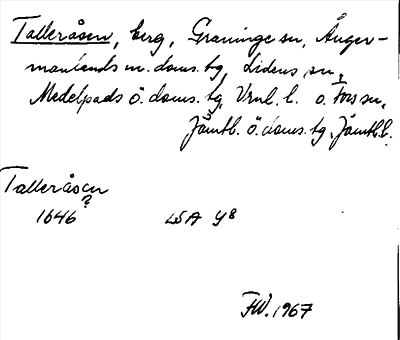 Talleråsen, berg, Graninge sn, Ånger-
manlands m. doms. tg, Lidens sn,
Medelpads ö. doms. tg, Vrnl. l. o. Fors sn,
Jämtl. ö. doms. tg, Jämtl. l.
Talleråsen
?
1646 LSA Y8
FW. 1967